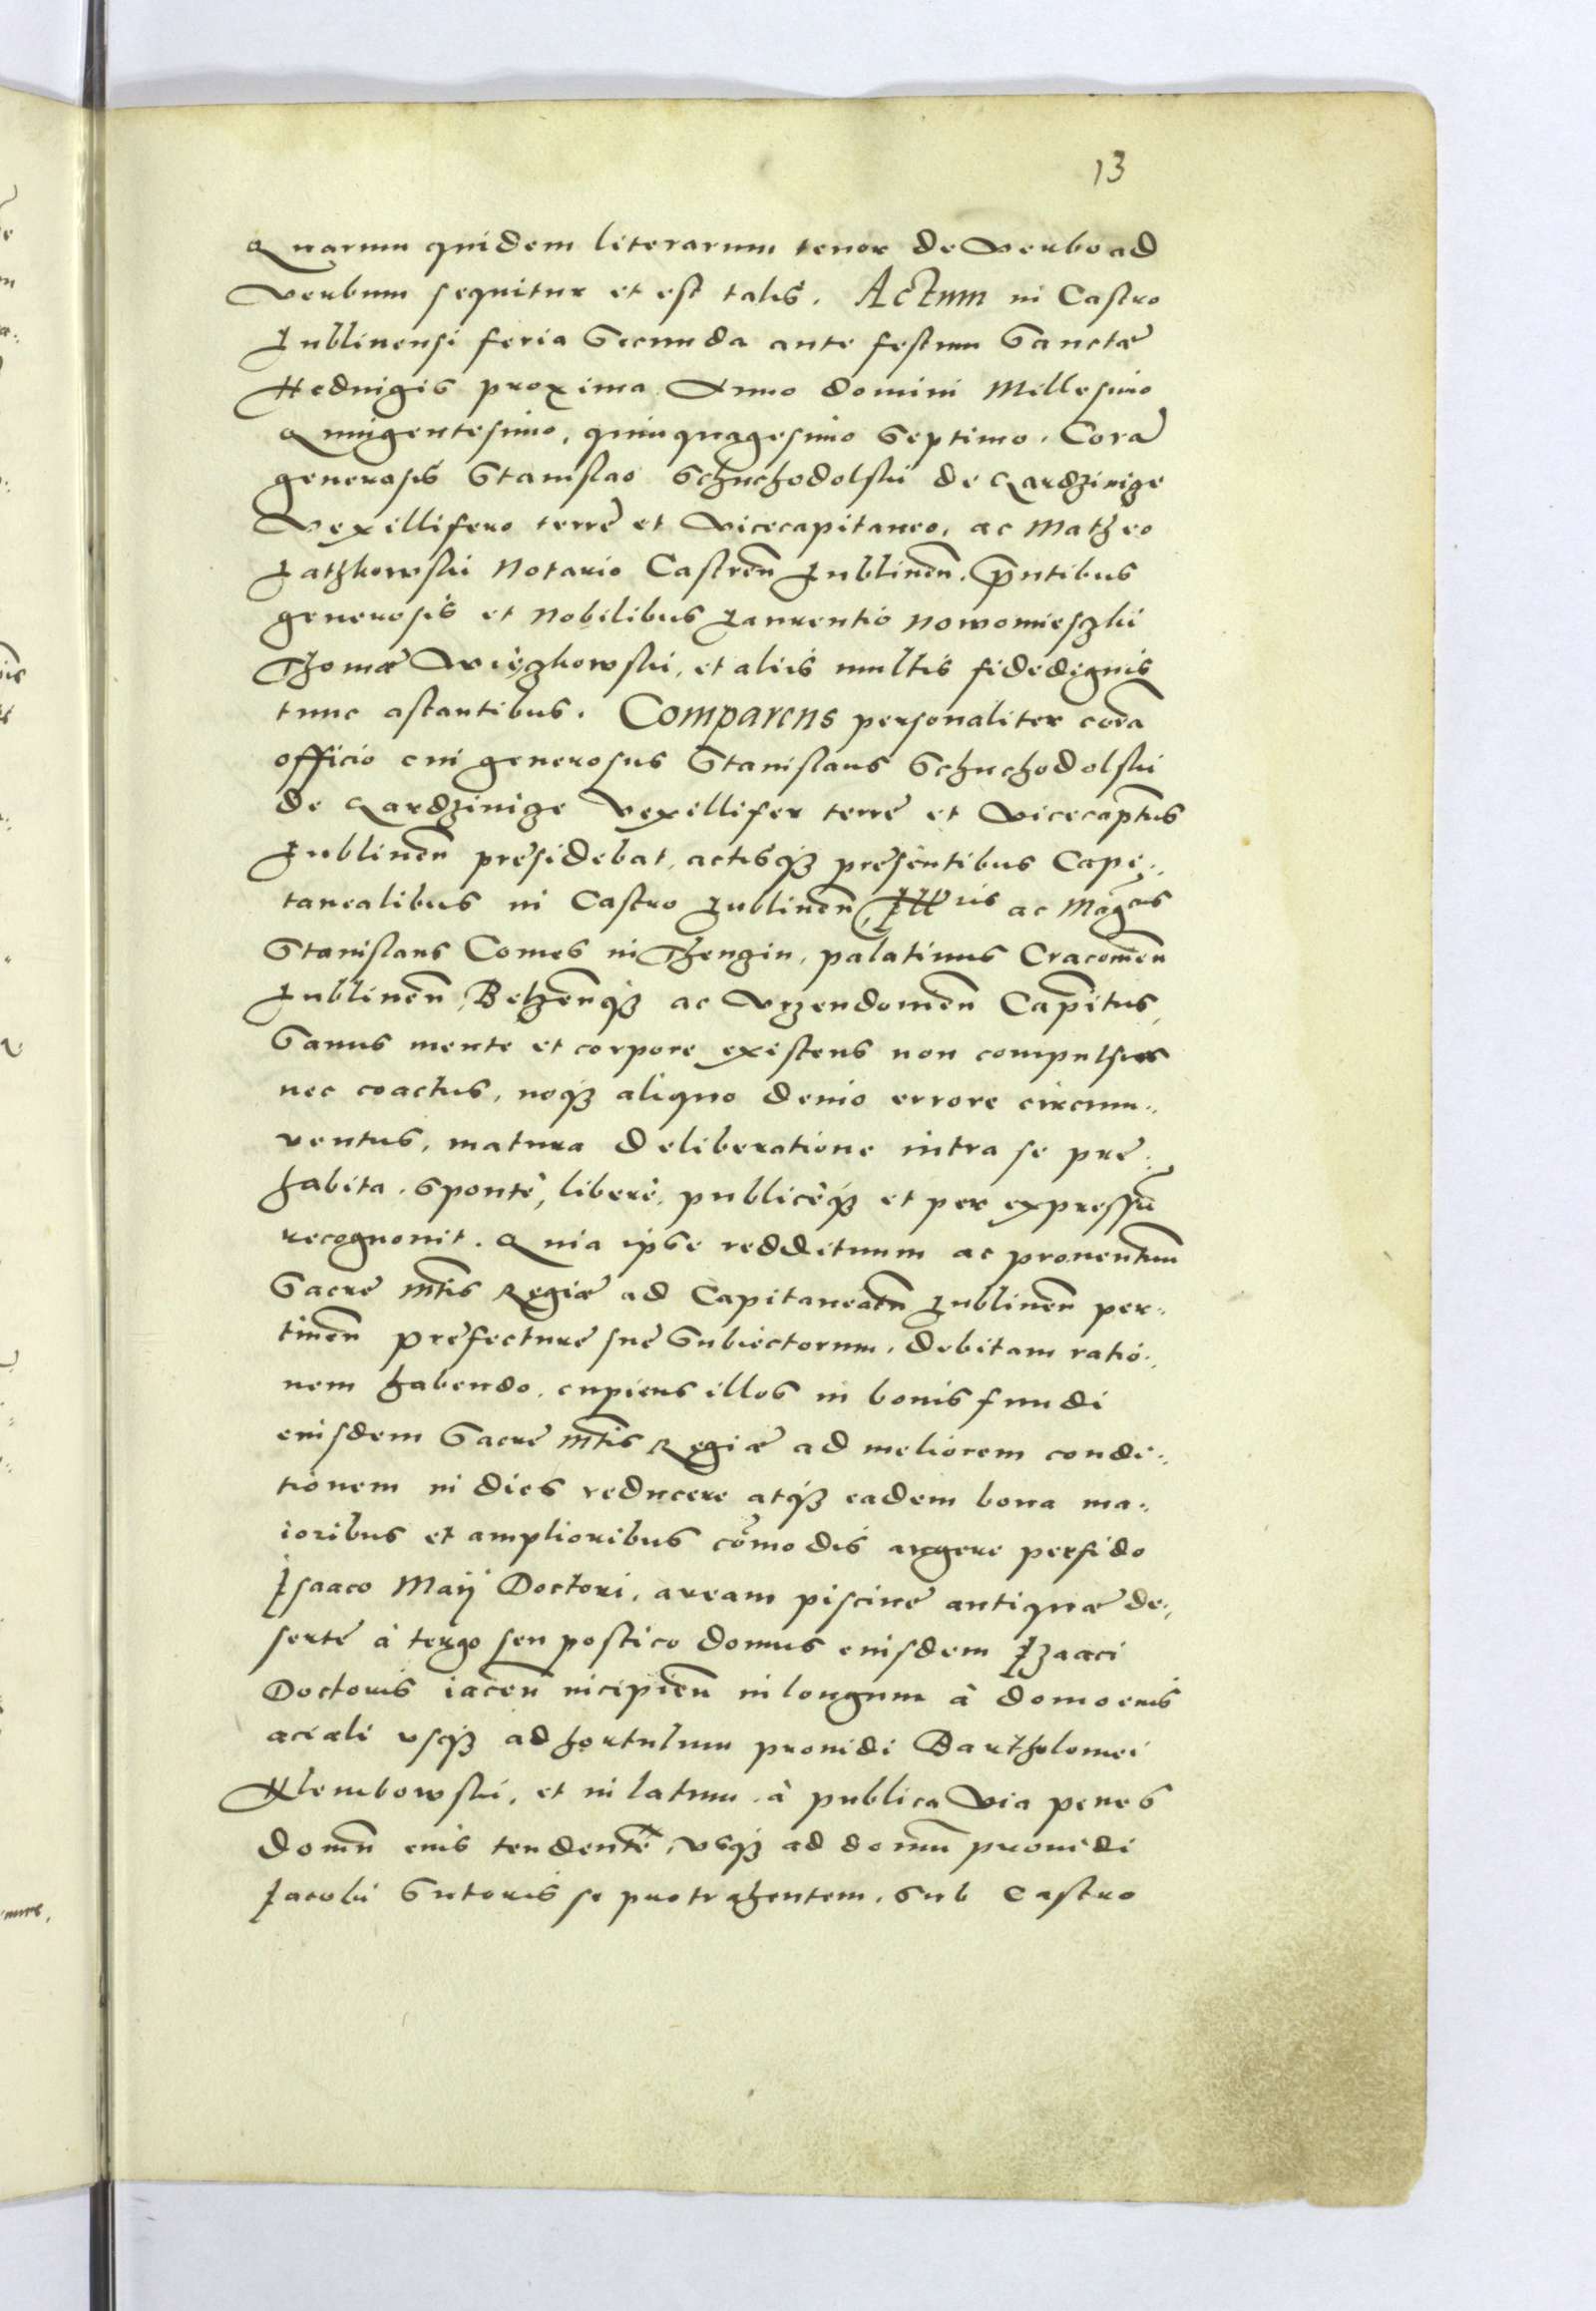 13
Quarum quidem literarum tenor de Verbo ad
Verbum sequitur et est talis. Actum in Castro
Lublinensi feria Secunda ante festum Sanctæ
Hedvigis proxima Anno domini Millesimo
Quingentesimo, quinquagesimo Septimo. Corã
generosis Stanislao Schuchodolski de
Vexillifero terrę et Vicecapitaneo, ac Matheo
Notario Castreñ Lublineñ. p̃ntibus
generosis et Nobilibus Laurentio Nowomieszki
Thomæ Więzkowski, et aliis multis fidedignis
tunc astantibus. Comparens personaliter corã
officio cui generosus Stanislaus Schuchodolski
de Vexillifer terrę et Vicecaptus
Lublineñ presidebat, actisqз presentibus Capi„
tanealibus in Castro Lublineñ, Illris ac Magcus
Stanislaus Comes in Thenzin, palatinus Cracovieñ
Lublineñ, Belzeñqз ac Capitus,
Sanus mente et corpore existens non compulsus
nec coactus, neqз aliquo devio errore circum„
ventus, matura deliberatione intra se prę„
habita, Spontè, liberè, publicèqз et per expressũ
recognovit. Quia ipse reddituum ac proventuũ
Sacrę Mtis Regiæ ad Capitaneatũ Lublineñ per„
tineñ prefecturę suę Subiectorum, debitam ratio„
nem habendo, cupiens illos in bonis fundi
eiusdem Sacrę Mtis Regiæ ad meliorem condi„
tionem in dies reducere atqз eadem bona ma„
ioribus et amplioribus cõmodis augere perfido
Isaaco Maij Doctori, aream piscinę antiquæ de„
sertę à tergo seu postico domus eiusdem Izaaci
Doctoris iaceñ incipieñ in longum à domo eius
aciali usqз ad hortulum providi Bartholomei
Klembowski, et in latum à publica Via penes
domũ eius tendentẽ, usqз ad domũ providi
Jacobi Sutoris se protrahentem, sub Castro